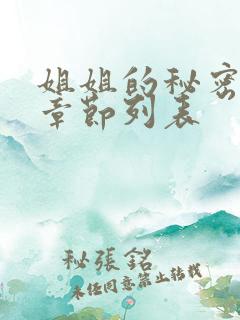 姐姐的秘密
章節列表
秘張銘
未经同意禁止转载